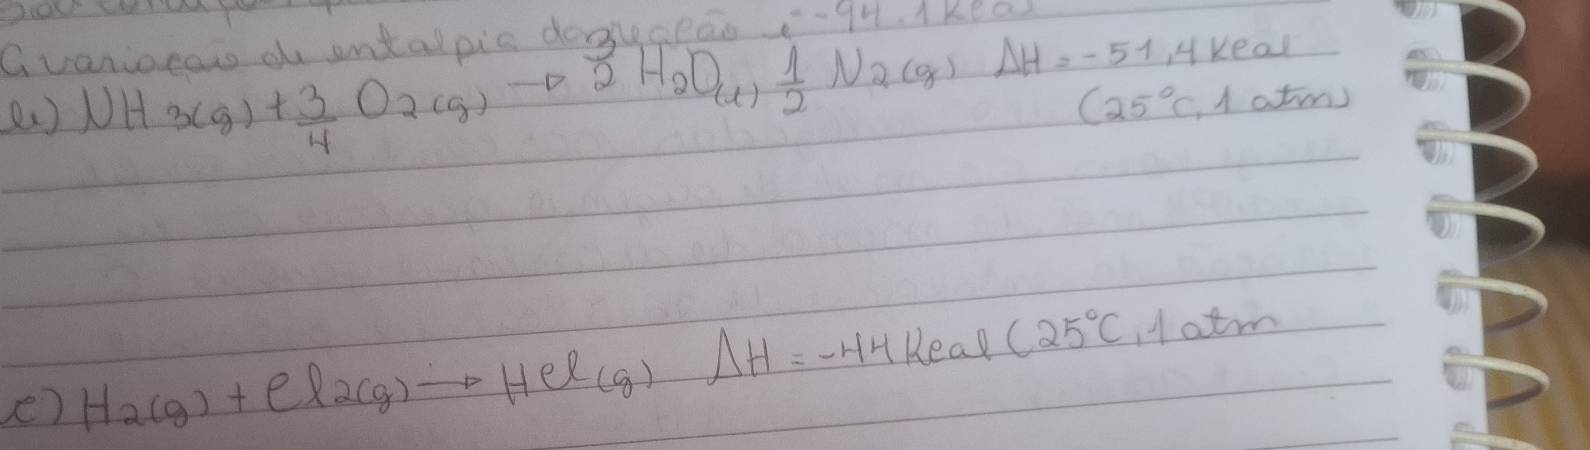 A variação de entalpia da reação é -94,1 Kcal
b) NH3(g) + 3/4 O2(g) → 3/2 H2O(l) 1/2 N2(g) ΔH = -51,4 Kcal
(25°C, 1 atm)
c) H2(g) + Cl2(g) → HCl(g) ΔH = -44 Kcal (25°C, 1 atm